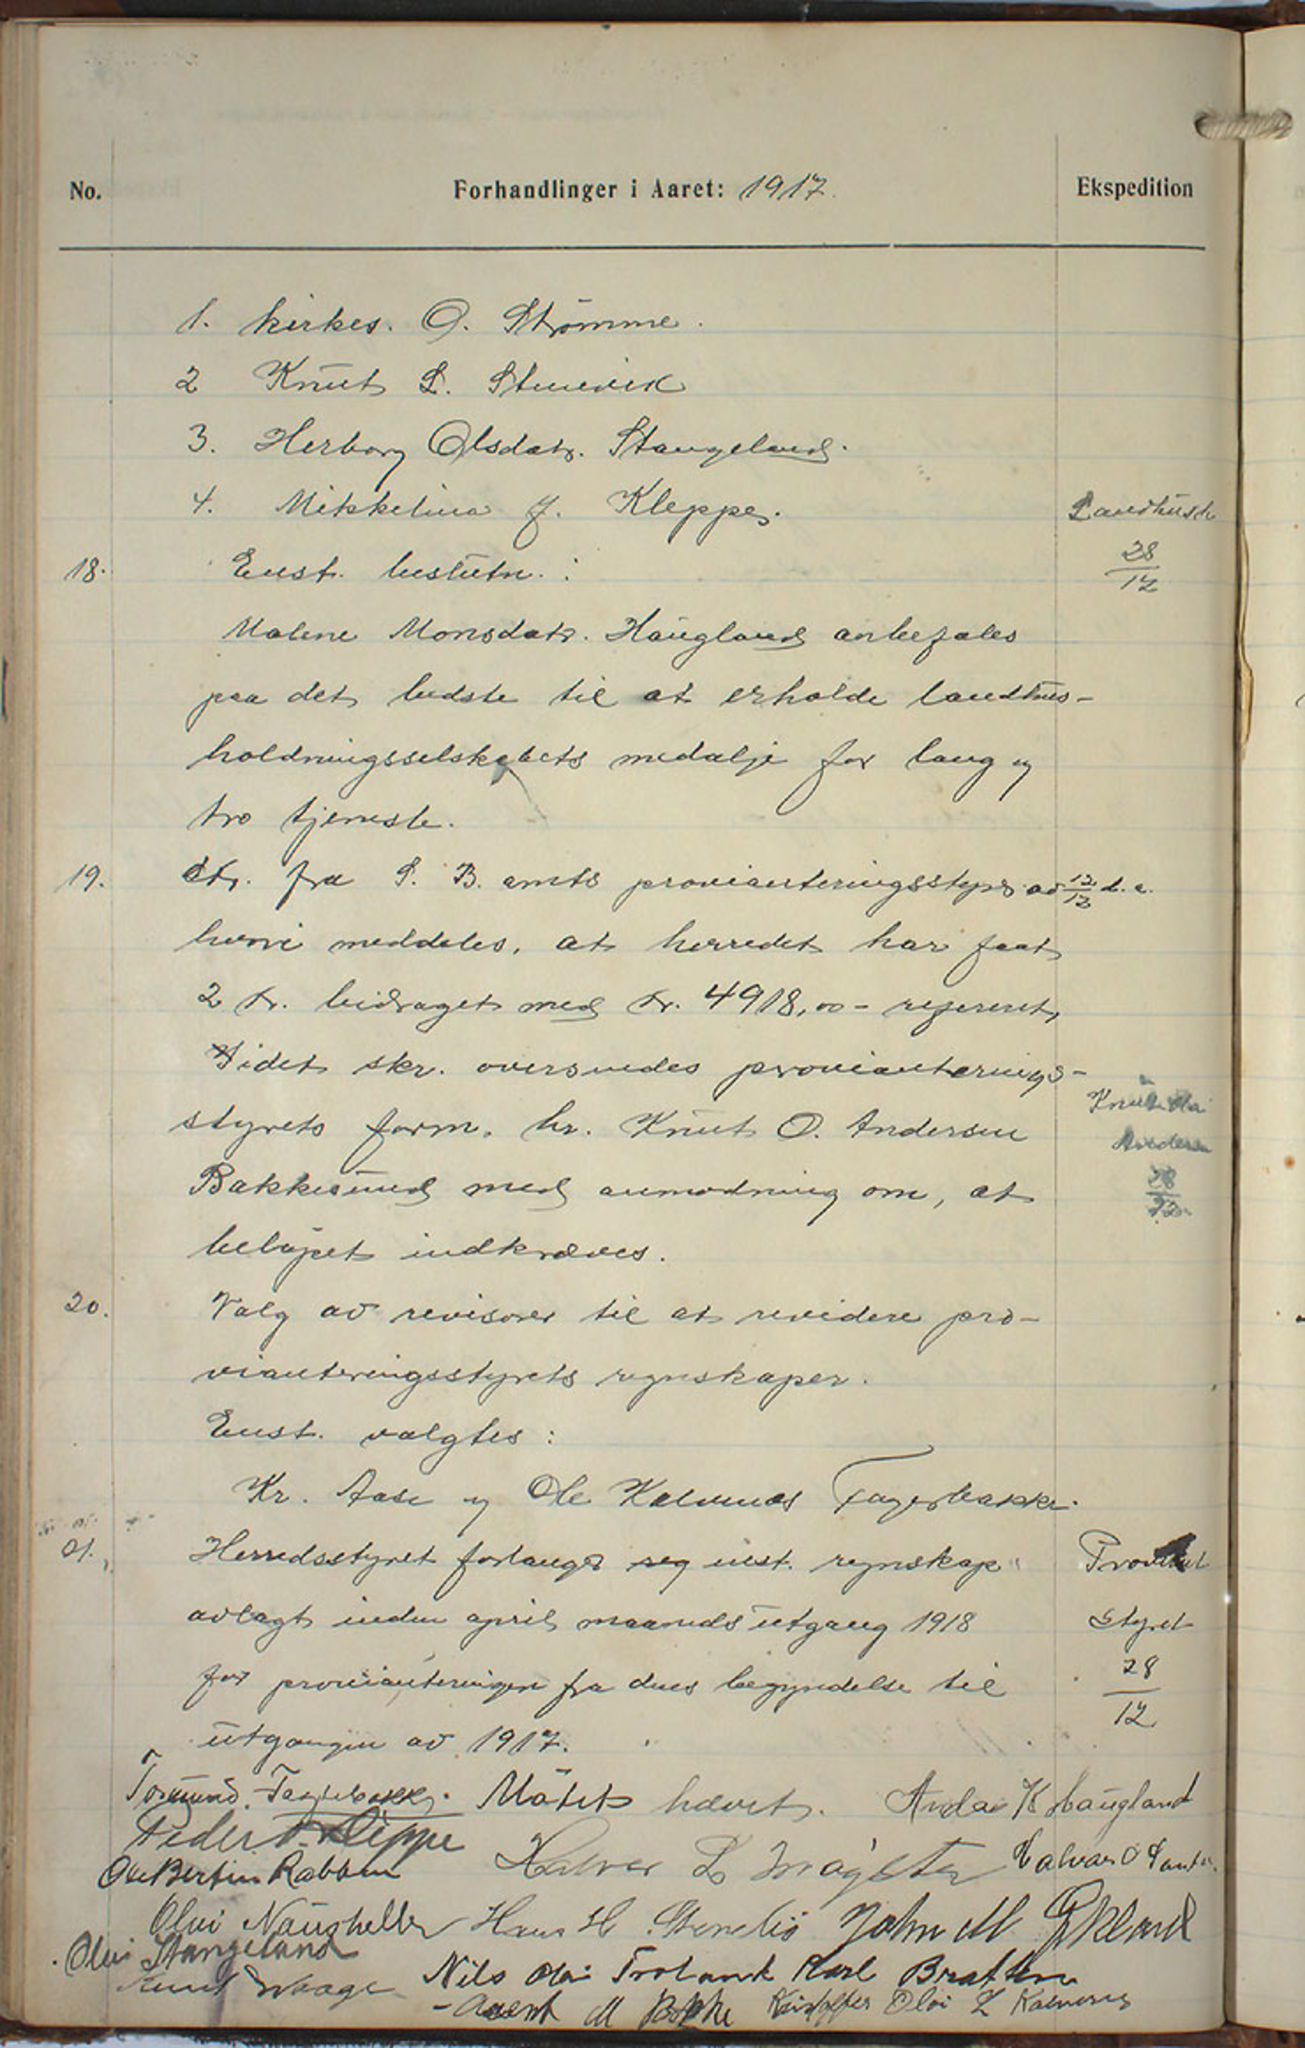 No.
Forhandlinger i Aaret: 1917.
Ekspedition
1. kirkes. O. Strømme.
2 Knut L. Stenevik
3. Herborg Olsdatr. Stangeland.
4. Mikkelina J. Kleppe.
Landhush
28
12
18.
Enst. beslutn. :
Malene Monsdatr. Haugland anbefales
paa det bedste til at erholde landhus-
holdningsselskabets medalje for lang og
tro tjeneste.
19.
Skr. fra S. B. amts provianteringsstyre av 12/12 d. a.
hvori meddeles, at herredet har faat
2 kr. bidraget med kr. 4918,00 - referert,
Vidt skr. oversendes provianterings-
styrets form. hr. Knut O. Andersen
Bakkesund med anmodning om, at
beløpet indkræves.
Knut Olai
Andersen
28
12
20.
Valg av revisorer til at revidere pro-
vianteringsstyrets regnskaper.
Enst. valgtes :
Kr. Aase og Ole Kalvenes Fagerbakke.
21.
Herredsstyret forlanger seg enst. regnskap
avlagt inden april maaneds utgang 1918
for provianteringen fra dens begyndelse til
utgangen av 1917.
Proviant
styret
28
12
Tormund Fagerbakke. Møtet hævet. Anda K Haugland
Peder Kleppe
Ole Bertin Rabben Halvor L Møgster Halvar O
Olai Naustheller Hans H. Stenelio John M Økland
Olai Stangeland
Knut Waage Nils Olai Troland Karl Bratten
M Bakke Kristoffer Olai L Kalvenes